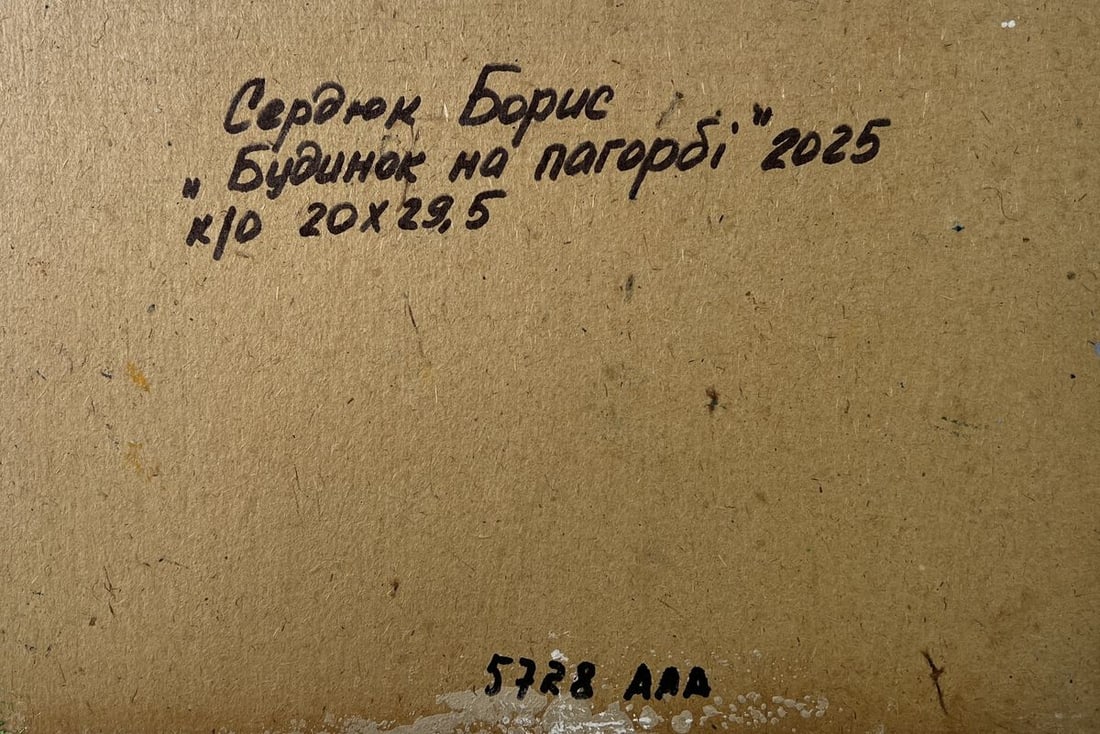 Сердюк Борис
„Будинок на пагорбі" 2025
к/о 20х29,5
5728 ААА